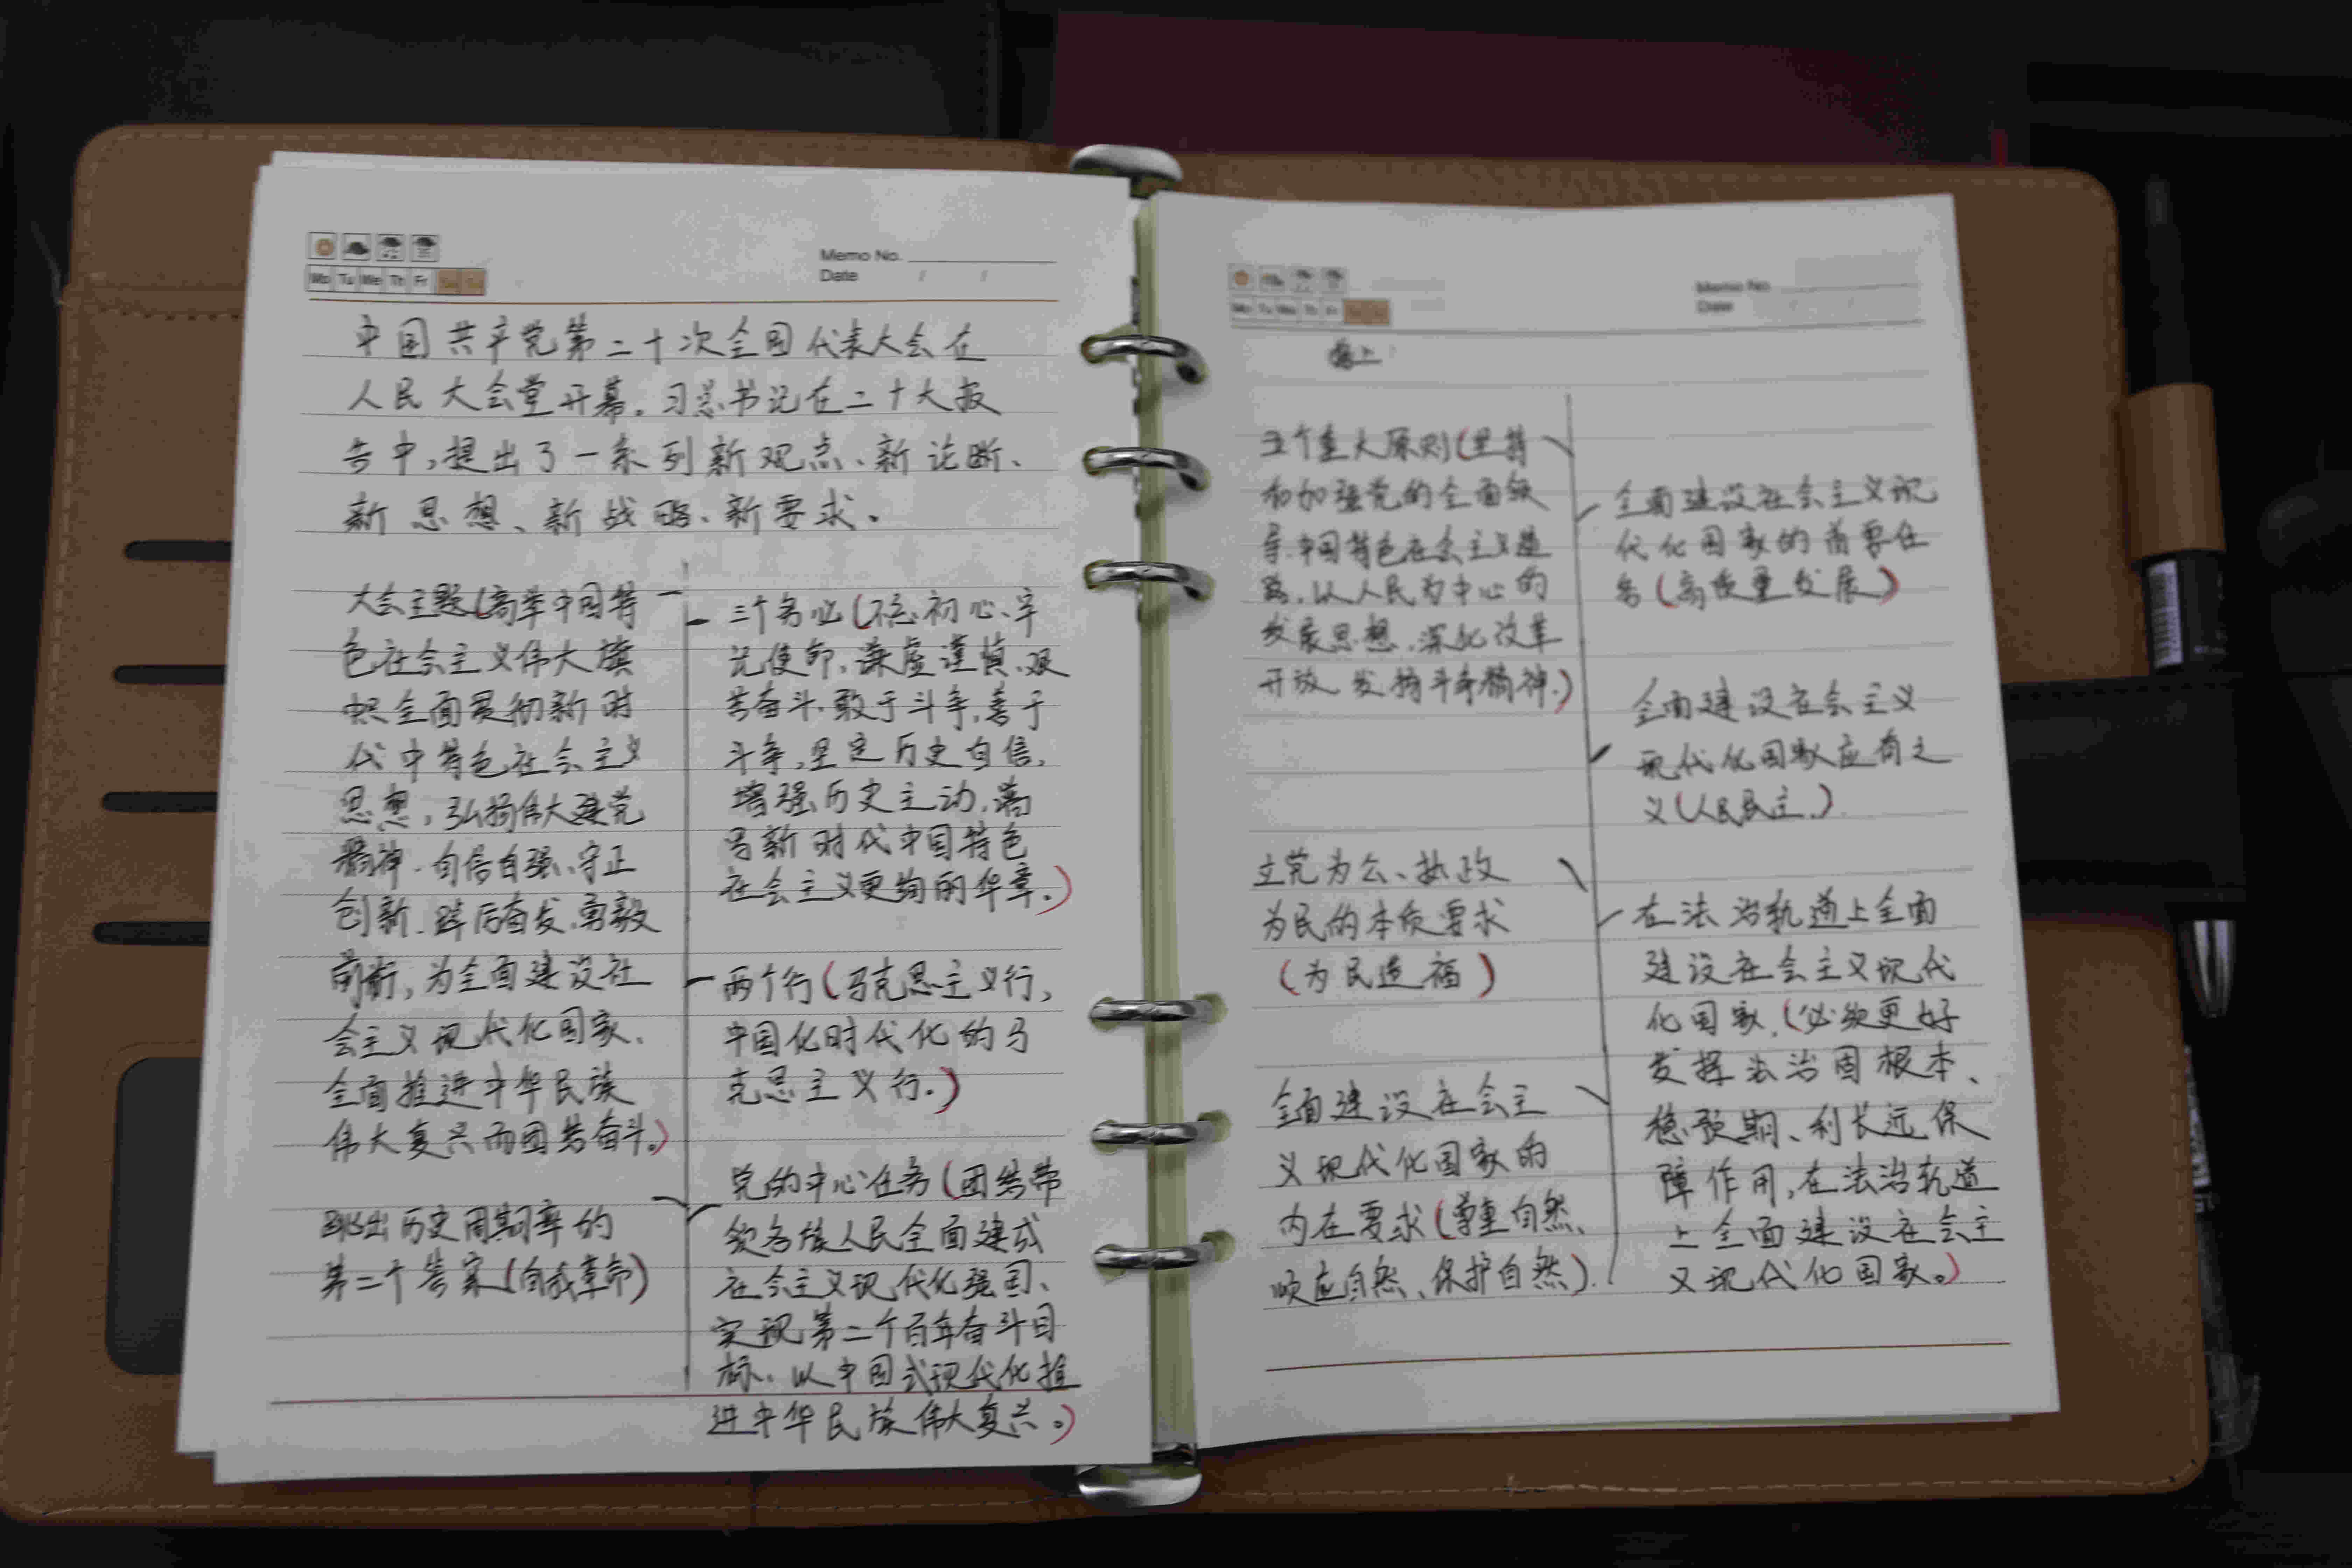 Memo No.
Date / /
Mo Tu We Th Fr Sa Su
中国共产党第二十次全国代表大会在
人民大会堂开幕。习总书记在二十大报
告中,提出了一系列新观点、新论断、
新思想、新战略、新要求。
大会主题(高举中国特
色社会主义伟大旗
帜全面贯彻新时
代中特色社会主义
思想,弘扬伟大建党
精神.自信自强、守正
创新.踔厉奋发.勇毅
前行,为全面建设社
会主义现代化国家、
全面推进中华民族
伟大复兴而团结奋斗。)
跳出历史周期率的
第二个答案(自我革命)
三个务必(不忘初心、牢
记使命,谦虚谨慎、艰
苦奋斗,敢于斗争,善于
斗争,坚定历史自信,
增强历史主动,谱
写新时代中国特色
社会主义更绚的华章.)
两个行(马克思主义行,
中国化时代化的马
克思主义行.)
党的中心任务(团结带
领各族人民全面建成
社会主义现代化强国、
实现第二个百年奋斗目
标,以中国式现代化推
进中华民族伟大复兴。)
Memo No.
Date
Mo Tu We Th Fr
五个重大原则(坚持
和加强党的全面领
导.中国特色社会主义道
路,以人民为中心的
发展思想,深化改革
开放.发扬斗争精神.)
立党为公、执政
为民的本质要求
(为民造福)
全面建设社会主
义现代化国家的
内在要求(尊重自然、
顺应自然、保护自然).
全面建设社会主义现
代化国家的首要任
务(高质量发展)
全面建设社会主义
现代化国家应有之
义(人民民主.)
在法治轨道上全面
建设社会主义现代
化国家.(必须更好
发挥法治固根本、
稳预期、利长远保
障作用,在法治轨道
上全面建设社会主
义现代化国家。)